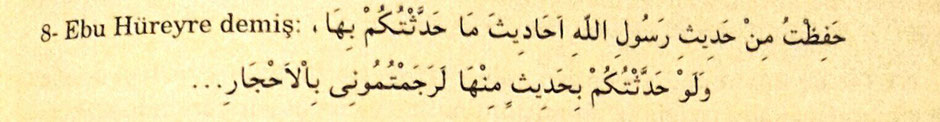 8- Ebu Hüreyre demiş: حَفِظْتُ مِنْ حَدِيثِ رَسُولِ اللّٰهِ اَحَادِيثَ مَا حَدَّثْتُكُمْ بِهَا ،
وَلَوْ حَدَّثْتُكُمْ بِحَدِيثٍ مِنْهَا لَرَجَمْتُمُونِى بِالْاَحْجَارِ...